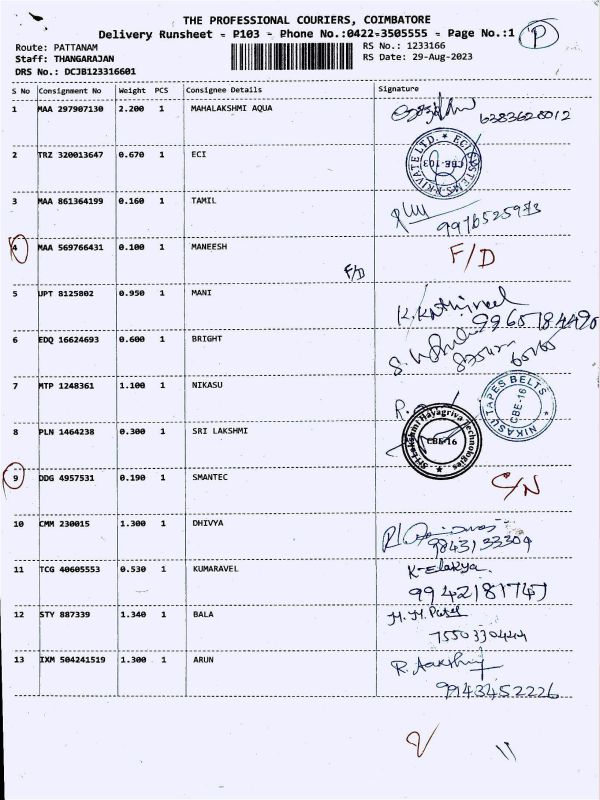 THE PROFESSIONAL COURIERS, COIMBATORE
Delivery Runsheet - P103 - Phone No.:0422-3505555 - Page No.:1 P
Route: PATTANAM RS No.: 1233166
Staff: THANGARAJAN RS Date: 29-Aug-2023
DRS No.: DCJB123316601
S No Consignment No Weight PCS Consignee Details Signature
1 MAA 297907130 2.200 1 MAHALAKSHMI AQUA
2 TRZ 320013647 0.670 1 ECI ECI SYSTEMS PRIVATE LTD. ★ CBE-103
3 MAA 861364199 0.160 1 TAMIL
9976525973
4 MAA 569766431 0.100 1 MANEESH F/D
F/D
5 JPT 8125802 0.950 1 MANI
6 EDQ 16624693 0.600 1 BRIGHT
7 MTP 1248361 1.100 1 NIKASU NIKASU TAPES BELTS CBE-16
8 PLN 1464238 0.300 1 SRI LAKSHMI Sri Lakshmi Hayagriva Technologies CBE-16
9 DDG 4957531 0.190 1 SMANTEC C/N
10 CMM 230015 1.300 1 DHIVYA
9843133309
11 TCG 40605553 0.530 1 KUMARAVEL K-Elakya
12 STY 887339 1.340 1 BALA M. M. Patel
7550330444
13 IXM 504241519 1.300 1 ARUN
9943452226